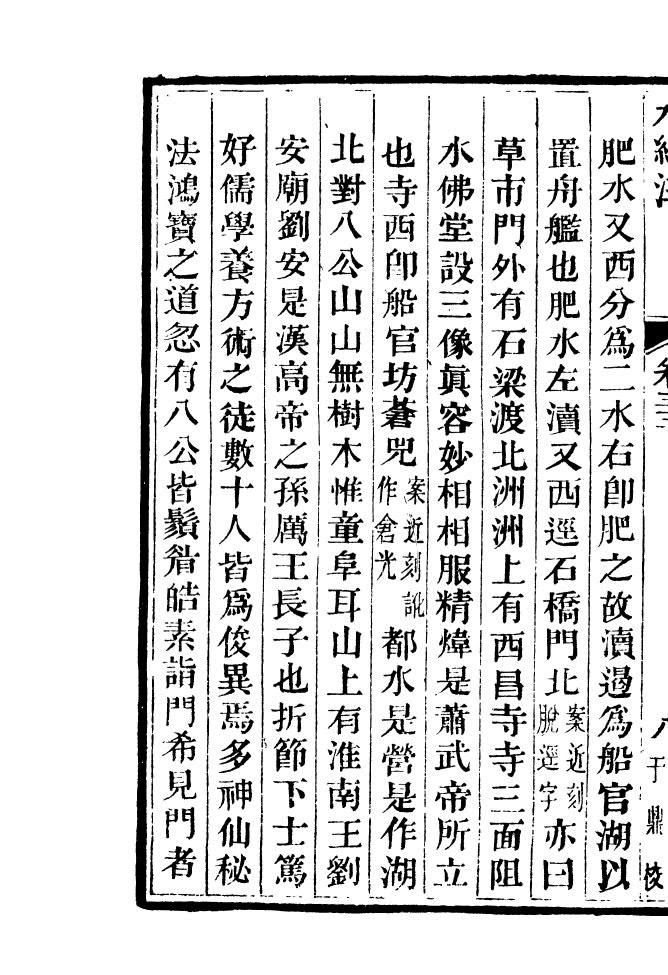 水經注 卷三十二 八 于鼎校
肥水又西分爲二水右卽肥之故瀆遏爲船官湖以
置舟艦也肥水左瀆又西逕石橋門北案近刻脫逕字亦曰
草市門外有石梁渡北洲洲上有西昌寺寺三面阻
水佛堂設三像眞容妙相相服精煒是蕭武帝所立
也寺西卽船官坊蒼兕案近刻訛作倉光都水是營是作湖
北對八公山山無樹木惟童阜耳山上有淮南王劉
安廟劉安是漢高帝之孫厲王長子也折節下士篤
好儒學養方術之徒數十人皆爲俊異焉多神仙秘
法鴻寶之道忽有八公皆鬚眉皓素詣門希見門者